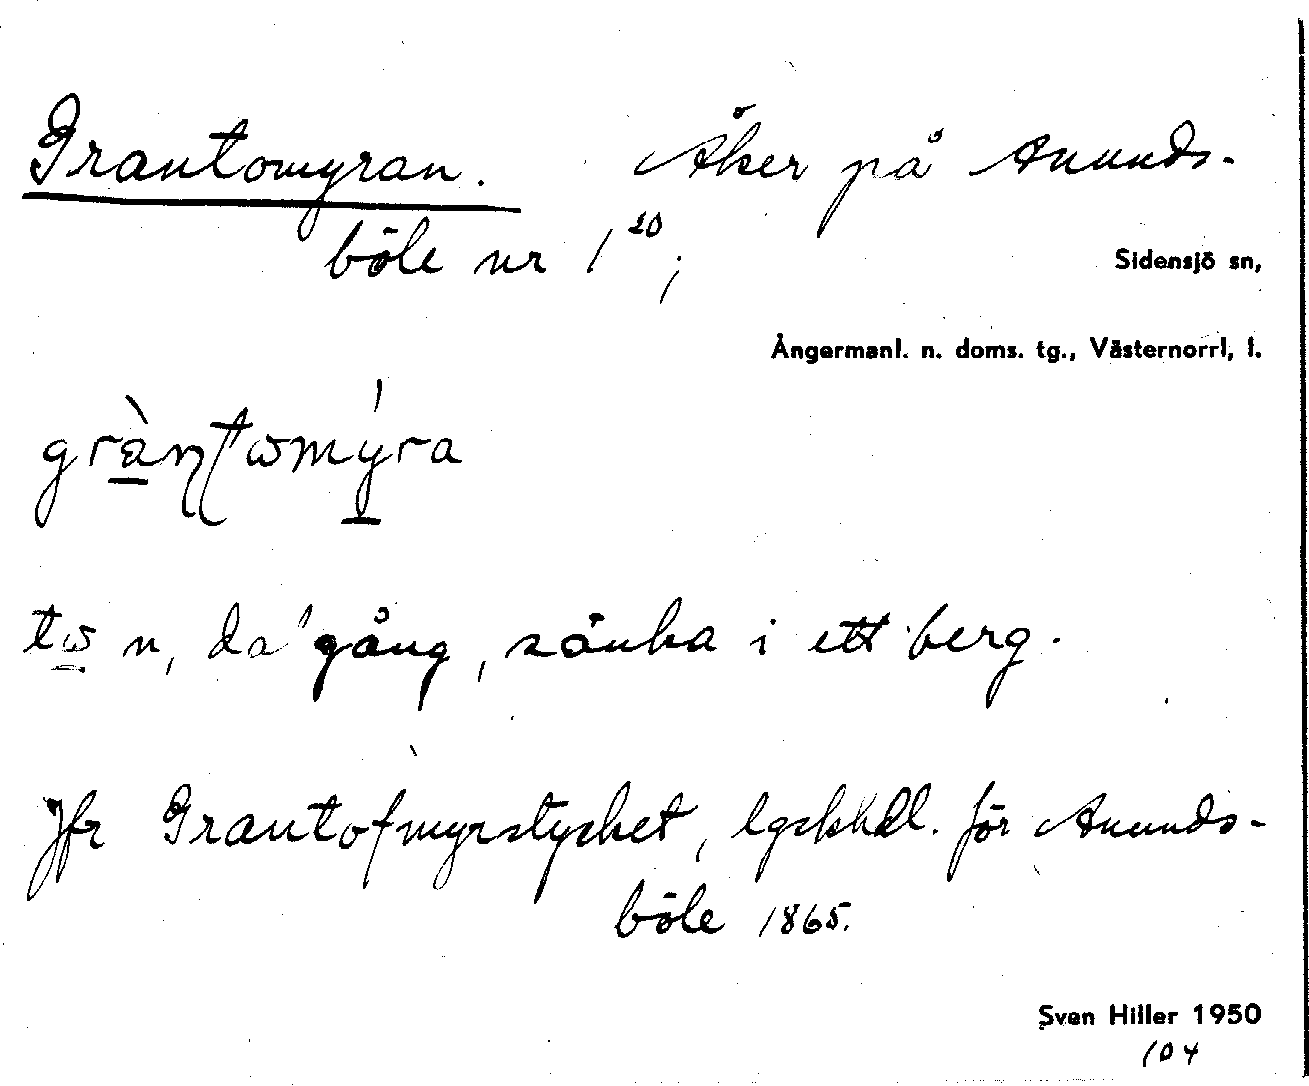 Grantomyran. Åker på Anunds-
böle nr 1²⁰;
Sidensjö sn,
Ångermanl. n. doms. tg., Västernorrl, l.
tω n, da' gång, sänka i ett berg.
Jfr Grantofmyrstycket, lgskhdl. för Anunds-
böle 1865.
Sven Hiller 1950
104